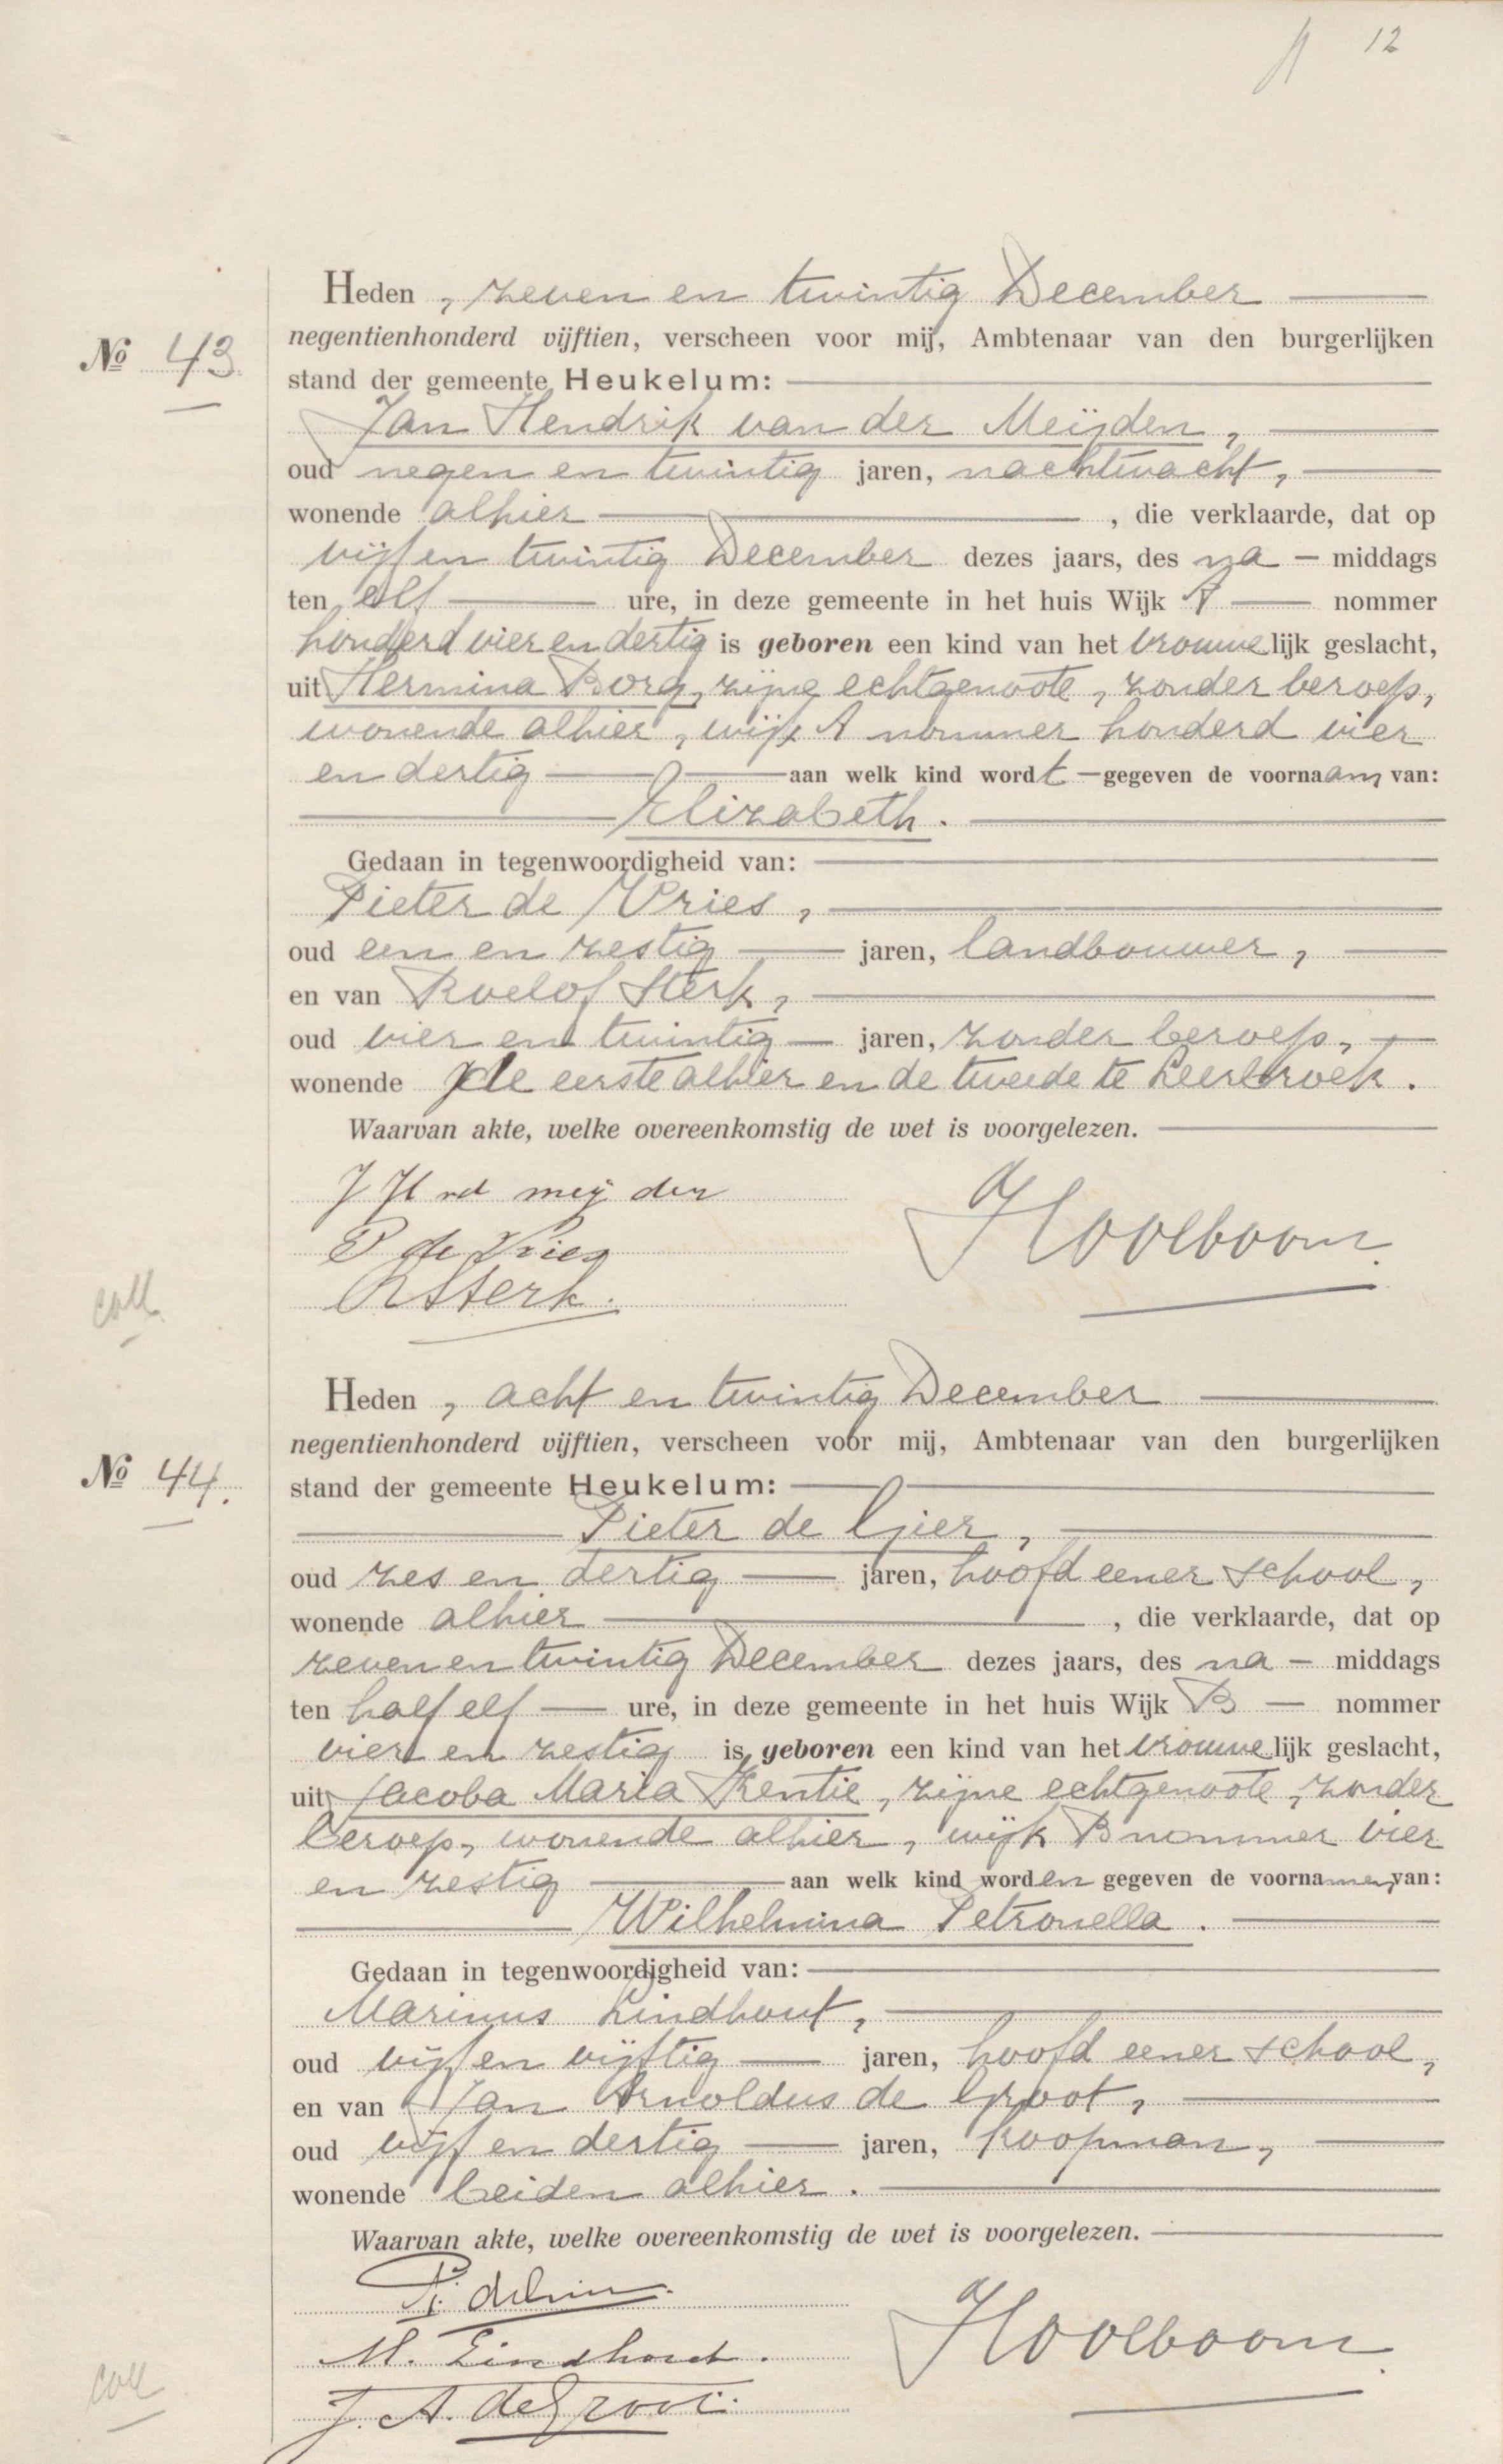 12
Heden, zeven en twintig December
negentienhonderd vijftien, verscheen voor mij, Ambtenaar van den burgerlijken
No 43.
stand der gemeente Heukelum:
Jan Hendrik van der Meijden,
oud negen en twintig jaren, nachtwacht,
wonende alhier, die verklaarde, dat op
vijf en twintig December dezes jaars, des na - middags
ten elf ure, in deze gemeente in het huis Wijk A nommer
honderd vier en dertig is geboren een kind van het vrouwelijk geslacht,
uit Hermina Borg, zijne echtgenoote, zonder beroep,
wonende alhier, wijk A nommer honderd vier
en dertig aan welk kind wordt gegeven de voornaam van:
Elizabeth.
Gedaan in tegenwoordigheid van:
Pieter de Vries,
oud een en zestig jaren, landbouwer,
en van Roelof Sterk,
oud vier en twintig jaren, zonder beroep,
wonende de eerste alhier en de tweede te Leerbroek.
Waarvan akte, welke overeenkomstig de wet is voorgelezen.
J H vd meij den
P de Vries
R Sterk.
Hoolboom
coll
Heden, acht en twintig December
negentienhonderd vijftien, verscheen voor mij, Ambtenaar van den burgerlijken
No 44.
stand der gemeente Heukelum:
Pieter de Gier,
oud zes en dertig jaren, hoofd eener school,
wonende alhier, die verklaarde, dat op
zeven en twintig December dezes jaars, des na - middags
ten half elf ure, in deze gemeente in het huis Wijk B nommer
vier en zestig is geboren een kind van het vrouwelijk geslacht,
uit Jacoba Maria Kentie, zijne echtgenoote, zonder
beroep, wonende alhier, wijk B nommer vier
en zestig aan welk kind worden gegeven de voornamen van:
Wilhelmina Petronella.
Gedaan in tegenwoordigheid van:
Marinus Lindhout,
oud vijf en vijftig jaren, hoofd eener school,
en van Jan Arnoldus de Groot,
oud vijf en dertig jaren, koopman,
wonende beiden alhier.
Waarvan akte, welke overeenkomstig de wet is voorgelezen.
P. de Gier.
M. Lindhout.
J. A. de Groot.
Hoolboom
coll